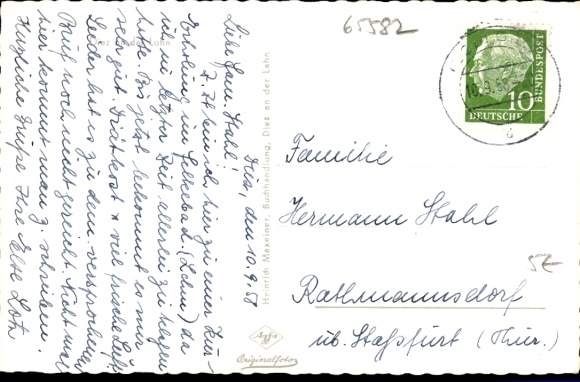 65582
Diez, den 10.9.58
Liebe Fam. Stahl!
Z. Zt. bin ich hier zu einer Kur-
Erholung im Felkebad. (Lehm) da
ich in letzter Zeit allerlei zu klagen
hatte. Bis jetzt bekommt es mir
sehr gut. Diätkost + viel frische Luft.
Leider hat es zu dem versprochenen
Brief noch nicht gereicht. Nicht mal
hier kommt man z. schreiben.
Herzliche Grüße Ihre Else Lotz
Diez an der Lahn
Heinrich Maxeiner, Buchhandlung, Diez an der Lahn
Agfa
Originalfoto
10
DEUTSCHE
BUNDESPOST
Familie
Hermann Stahl
Rathmannsdorf
üb. Staßfurt (Thür.)